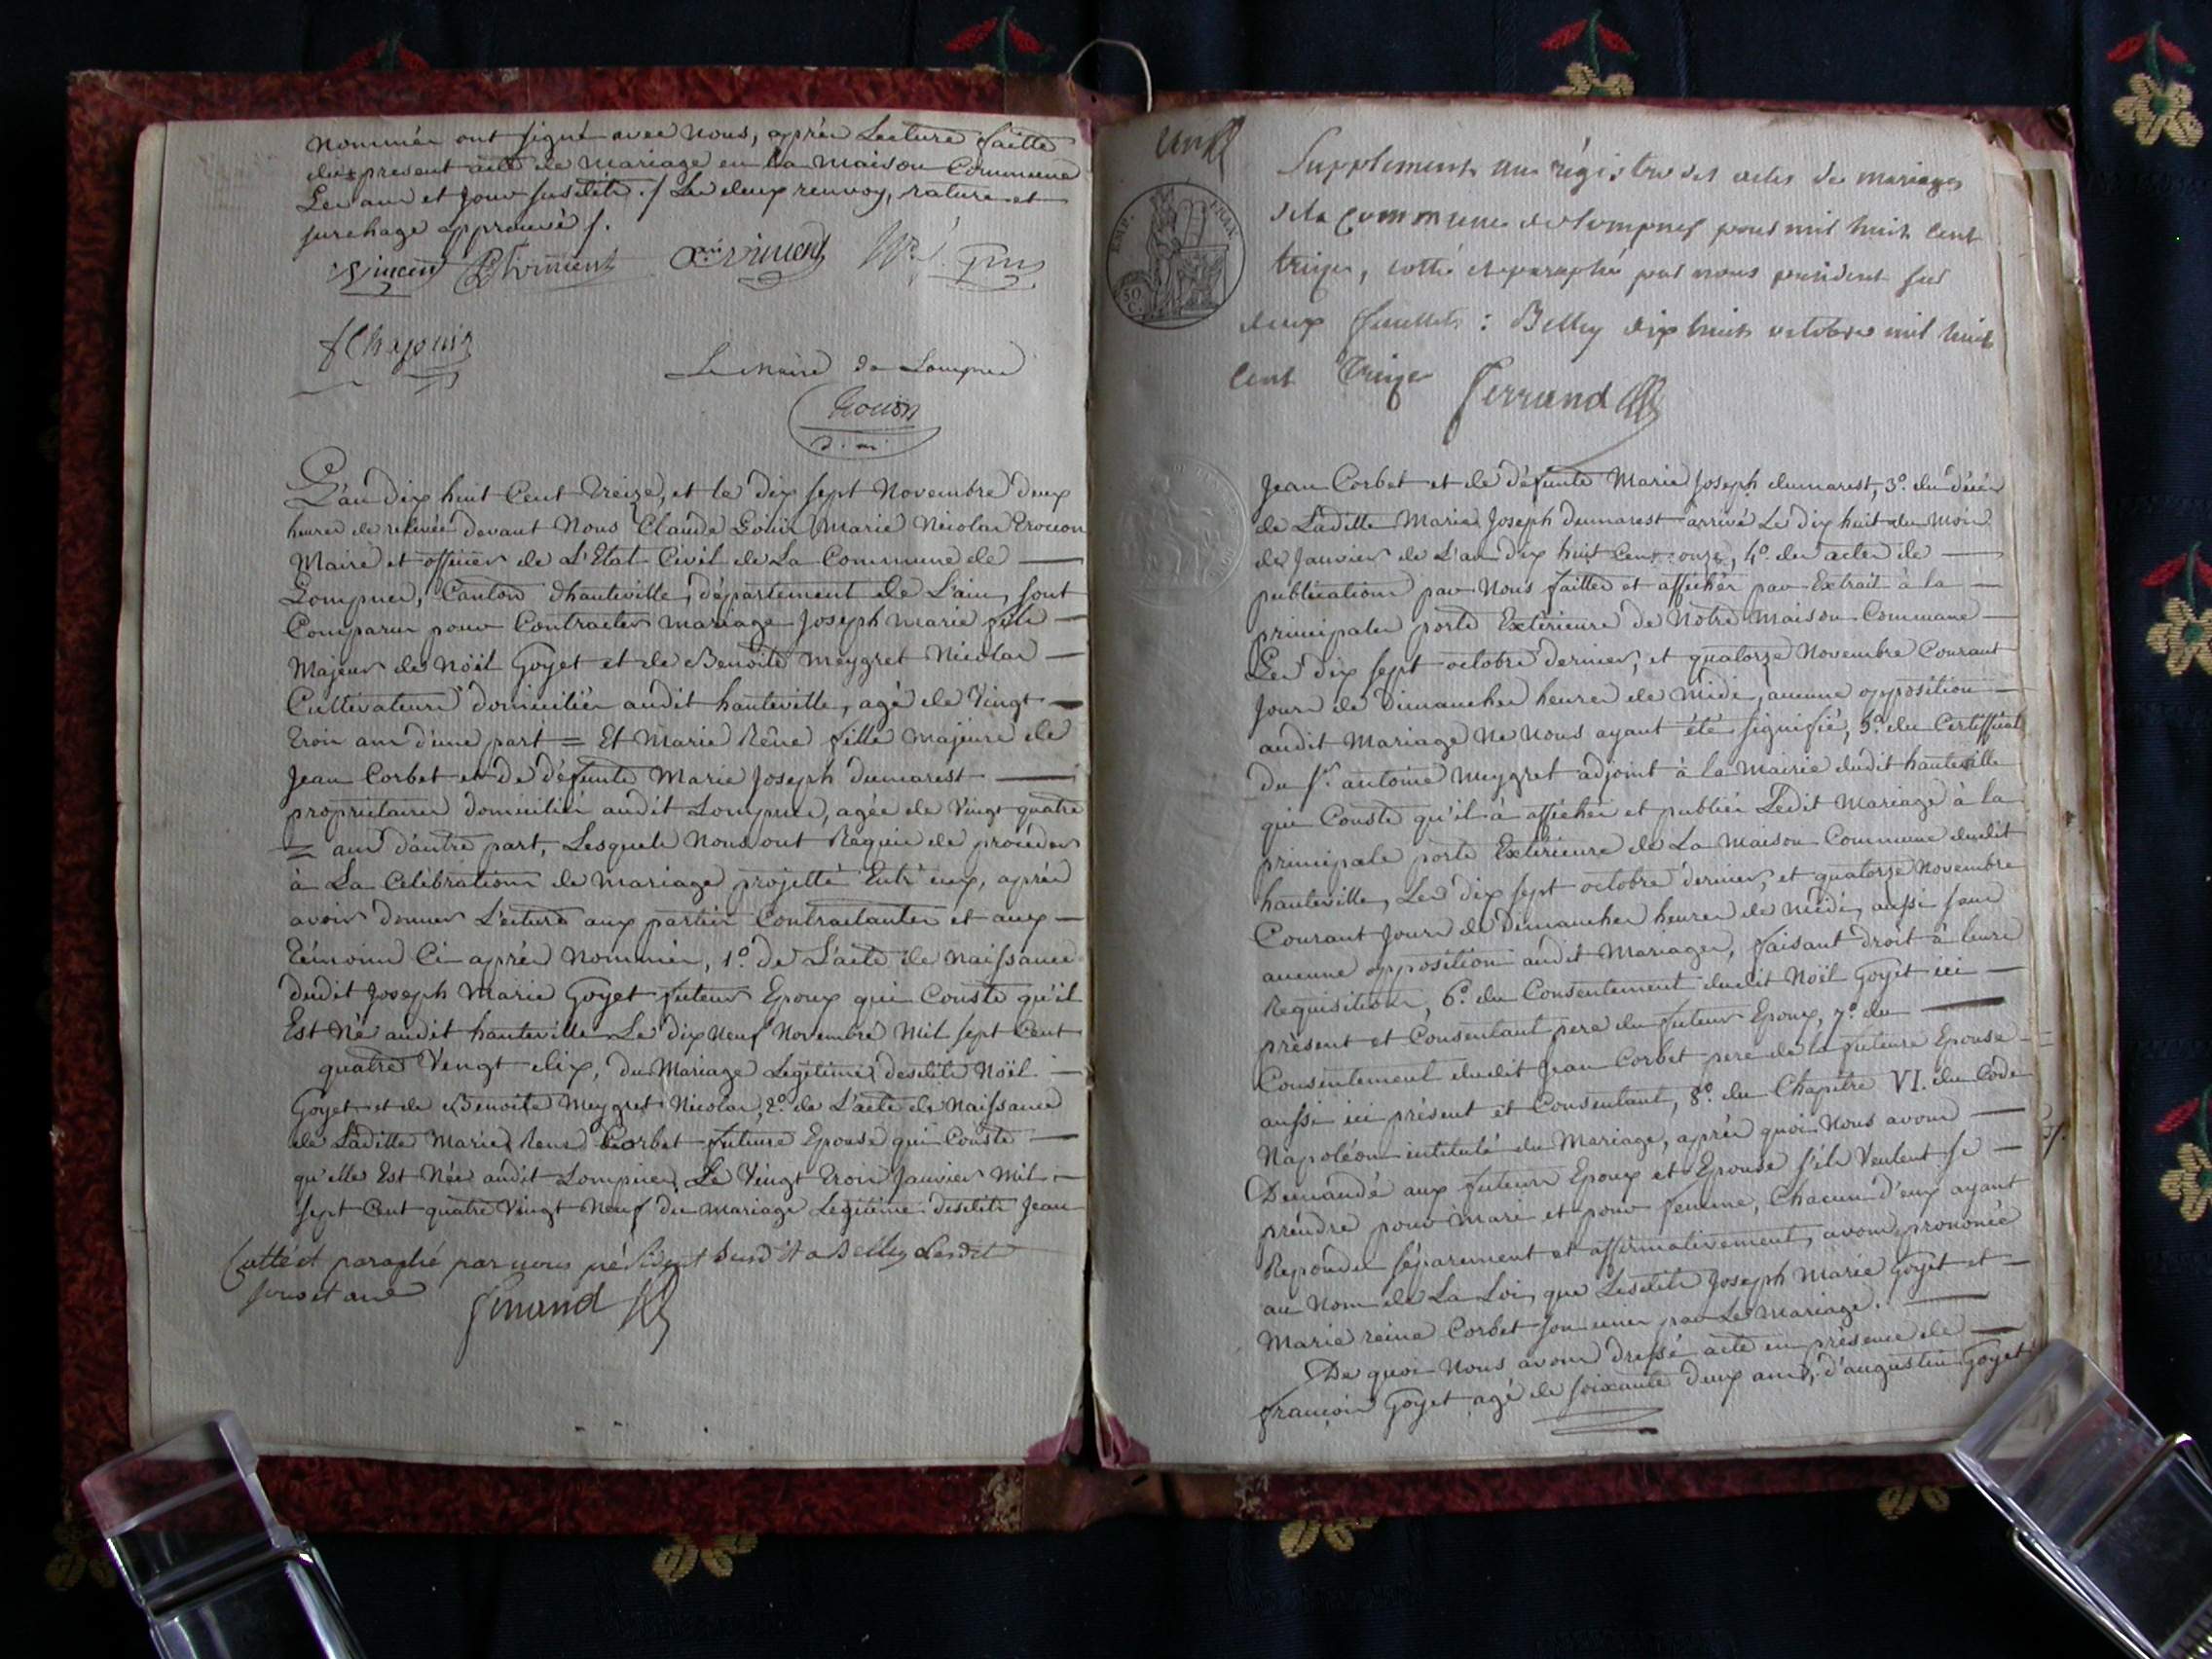 nommés ont signé avec nous, après Lecture faitte
du present acte de mariage en la maison Commune
Les an et jour susdits ./ Les deux renvoy, rature et
surchage approuvés /.
Vincent Vincent
Le Maire de Lompnes
Trocon
L'an dix huit Cent treize, et le dix sept Novembre deux
heures de relevée devant Nous Claude Louis Marie Nicolas Trocon
Maire et officier de L'Etat Civil de La Commune de
Lompnes, Canton d'hauteville, département de L'ain, sont
Comparus pour Contracter mariage Joseph Marie fils
Majeur de Noël Goyet et de Benoite Meygret Nicolas
Cultivateurs domiciliés audit hauteville, agé de Vingt
trois ans d'une part = Et Marie Rêne fille majeure de
Jean Corbet et de défunte Marie Joseph dumarest
proprietaires domiciliés audit Lompnes, agée de Vingt quatre
= ans d'autre part, Lesquels Nous ont Requis de procéder
à La Célébration de Mariage projetté Entr'eux, après
avoir donner L'ecture aux parties Contractantes et aux
Témoins Ci après Nommés, 1º. de L'acte de Naissance
dudit Joseph Marie Goyet futeur Epoux qui Conste qu'il
Est Né audit hauteville Le dix Neuf Novembre Mil sept Cent
quatre Vingt dix, du Mariage Légitime desdits Noël
Goyet et de Benoite Meygret Nicolas, 2º. de L'acte de Naissance
de Laditte Marie Rene Corbet futeure Epouse qui Conste
qu'elle Est Née audit Lompnes Le Vingt trois Janvier Mil
sept Cent quatre Vingt Neuf du Mariage Légitime desdits Jean
Cotté et paraphé par nous président susdit a Belley Lesdits
jour et an
Ferrand
un
EMP. FRAN.
50 C.
Supplement au régistre des actes de mariages
de la Commune de Lompnes pour mil huit Cent
treize, cotté et paraphé par nous président sur
deux feuillets : Belley dix huit octobre mil huit
Cent Treize Ferrand
Jean Corbet et de défunte Marie Joseph dumarest, 3º. du décès
de Laditte Marie Joseph Dumarest arrivé Le dix huit du Mois
de Janvier de L'an dix huit Cent onze, 4º. des actes de
publications par Nous faittes et affichés par Extrait à la
principale porte Extérieure de Notre Maison Commune
Les dix sept octobre dernier, et quatorze Novembre Courant
Jours de Dimanches heures de Midi, aucune opposition
audit Mariage Ne Nous ayant été signifié, 5º. du Certifficat
du Sr. antoine Meygret adjoint à la Mairie dudit hauteville
qui Conste qu'il à affichés et publiés Ledit Mariage à la
principale porte Extérieure de La Maison Commune dudit
hauteville, Les dix sept octobre dernier, et quatorze Novembre
Courant Jours de Dimanches heures de Midi, aussi sans
aucune opposition audit Mariage, faisant droit à leurs
Requisitions, 6º. du Consentement dudit Noël Goyet ici
présent et Consentant pere du futeur Epoux, 7º. du
Consentement dudit Jean Corbet pere de la futeure Epouse
aussi ici présent et Consentant, 8º. du Chapitre VI. du Code
Napoléon intitulé du Mariage, après quoi Nous avons
Demandé aux futeurs Epoux et Epouse s'ils Veulent se
prendre pour mari et pour femme, Chacun d'eux ayant
Répondu séparement et affirmativement, avons prononcé
au Nom de La Loi, que Lesdits Joseph Marie Goyet et
Marie reine Corbet son unis par Le Mariage.
De quoi Nous avons dressé acte en présence de
françois Goyet agé de soixante deux ans, d'augustin Goyet